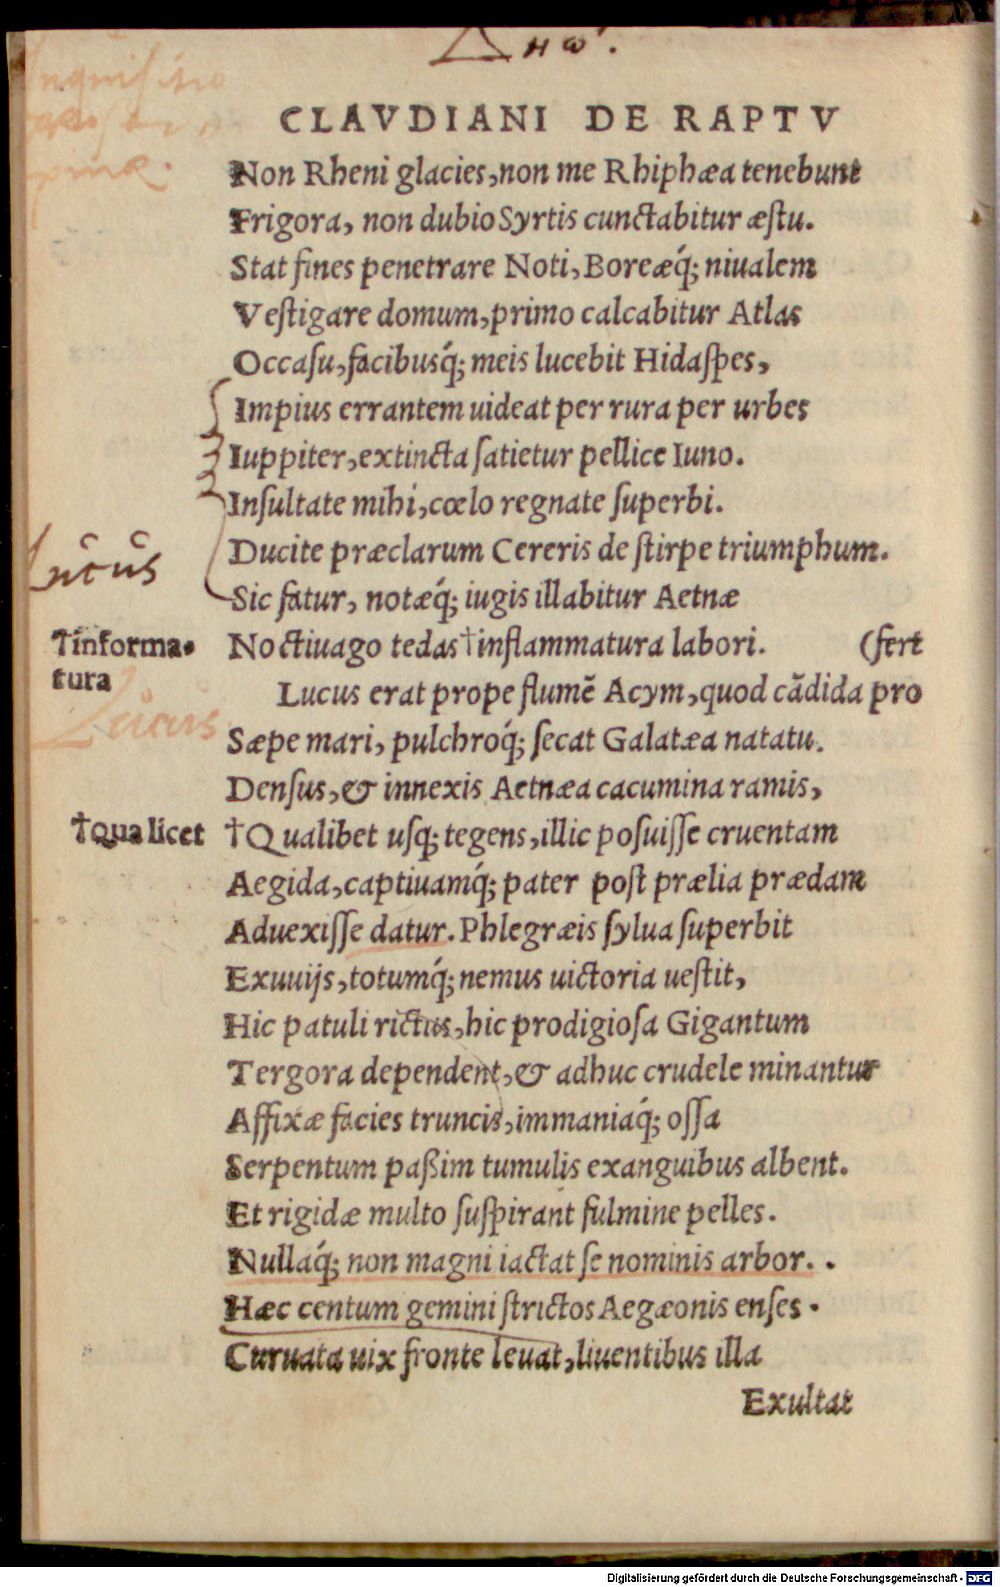 Δηω.
CLAVDIANI DE RAPTV
Non Rheni glacies, non me Rhiphæa tenebunt
Frigora, non dubio Syrtis cunctabitur æstu.
Stat fines penetrare Noti, Boreæq́; niualem
Vestigare domum, primo calcabitur Atlas
Occasu, facibusq́; meis lucebit Hidaspes,
Impius errantem uideat per rura per urbes
Iuppiter, extincta satietur pellice Iuno.
Insultate mihi, cœlo regnate superbi.
Ducite præclarum Cereris de stirpe triumphum.
Lucus
Sic fatur, notæq́; iugis illabitur Aetnæ
†informa-
tura
Noctiuago tedas †inflammatura labori. (fert
Lucus erat prope flumē Acym, quod cādida pro
Lucus
Sæpe mari, pulchroq́; secat Galatæa natatu.
Densus, & innexis Aetnæa cacumina ramis,
†qua licet
†Qualibet usq; tegens, illic posuisse cruentam
Aegida, captiuamq́; pater post prælia prædam
Aduexisse datur. Phlegræis sylua superbit
Exuuijs, totumq́; nemus uictoria uestit,
Hic patuli rictus, hic prodigiosa Gigantum
Tergora dependent, & adhuc crudele minantur
Affixæ facies truncis, immaniaq́; ossa
Serpentum paßim tumulis exanguibus albent.
Et rigidæ multo suspirant fulmine pelles.
Nullaq́; non magni iactat se nominis arbor.
Hæc centum gemini strictos Aegæonis enses.
Curuata uix fronte leuat, liuentibus illa
Exultat
Digitalisierung gefördert durch die Deutsche Forschungsgemeinschaft - DFG